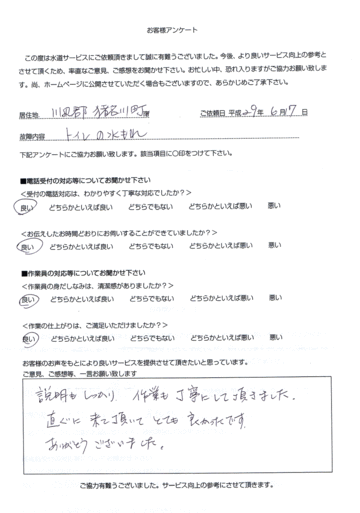 お客様アンケート
この度は水道サービスにご依頼頂きまして誠に有難うございました。今後、より良いサービス向上の参考と
させて頂くため、率直なご意見、ご感想をお聞かせ下さい。お忙しい中、恐れ入りますがご協力お願い致しま
す。尚、ホームページに公開させていただく場合もございますので、あらかじめご了承下さい。
居住地 川辺郡 猪名川町 ご依頼日 平成29年 6月17日
故障内容 トイレの水もれ
下記アンケートにご協力お願い致します。該当項目に○印をつけて下さい。
■電話受付の対応等についてお聞かせ下さい
<受付の電話対応は、わかりやすく丁寧な対応でしたか?>
良い どちらかといえば良い どちらでもない どちらかといえば悪い 悪い
<お伝えしたお時間どおりにお伺いすることができていましたか?>
良い どちらかといえば良い どちらでもない どちらかといえば悪い 悪い
■作業員の対応等についてお聞かせ下さい
<作業員の身だしなみは、清潔感がありましたか?>
良い どちらかといえば良い どちらでもない どちらかといえば悪い 悪い
<作業の仕上がりは、ご満足いただけましたか?>
良い どちらかといえば良い どちらでもない どちらかといえば悪い 悪い
お客様のお声をもとにより良いサービスを提供させて頂きたいと思っています。
ご意見、ご感想等、一言お願い致します
説明もしっかり 作業も丁寧にして頂きました.
直ぐに来て頂いてとても良かったです
ありがとうございました。
ご協力有難うございました。サービス向上の参考にさせて頂きます。